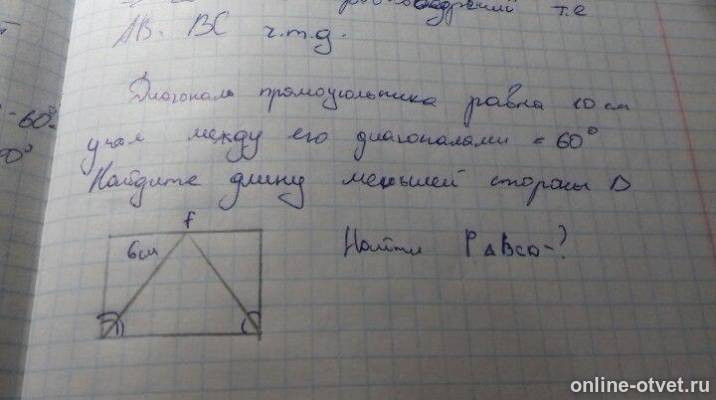 т.е
AB = BC ч.т.д.
Диагональ прямоугольника равна 10 см
угол между его диагоналами = 60°
Найдите длину меньшей стороны D
F
6см
Найти P ABCD -?
- 60°
0°
online-otvet.ru